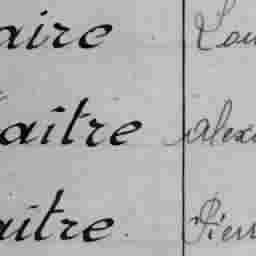 aire Lou
aître alex
aître Pier